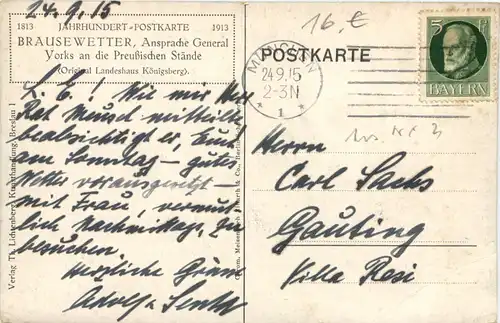 24.9.15
1813 JAHRHUNDERT-POSTKARTE 1913
BRAUSEWETTER, Ansprache General
Yorks an die Preußischen Stände
(Original Landeshaus Königsberg).
L. E.! Wie mir Herr
Rat Munsch mitteilte
beabsichtigt er, Euch
am Sonntag – gutes
Wetter vorausgesetzt –
mit Frau, vermut-
lich Nachmittags, zu
besuchen
Herzliche Grüsse
Adolf
Verlag Th. Lichtenberg (Kunsthandlung) Breslau I
16,€
POSTKARTE
MÜNCHEN
24.9.15
2-3N
* 1 *
5
BAYERN
Herrn
Carl Sachs
Gauting
Villa Resi